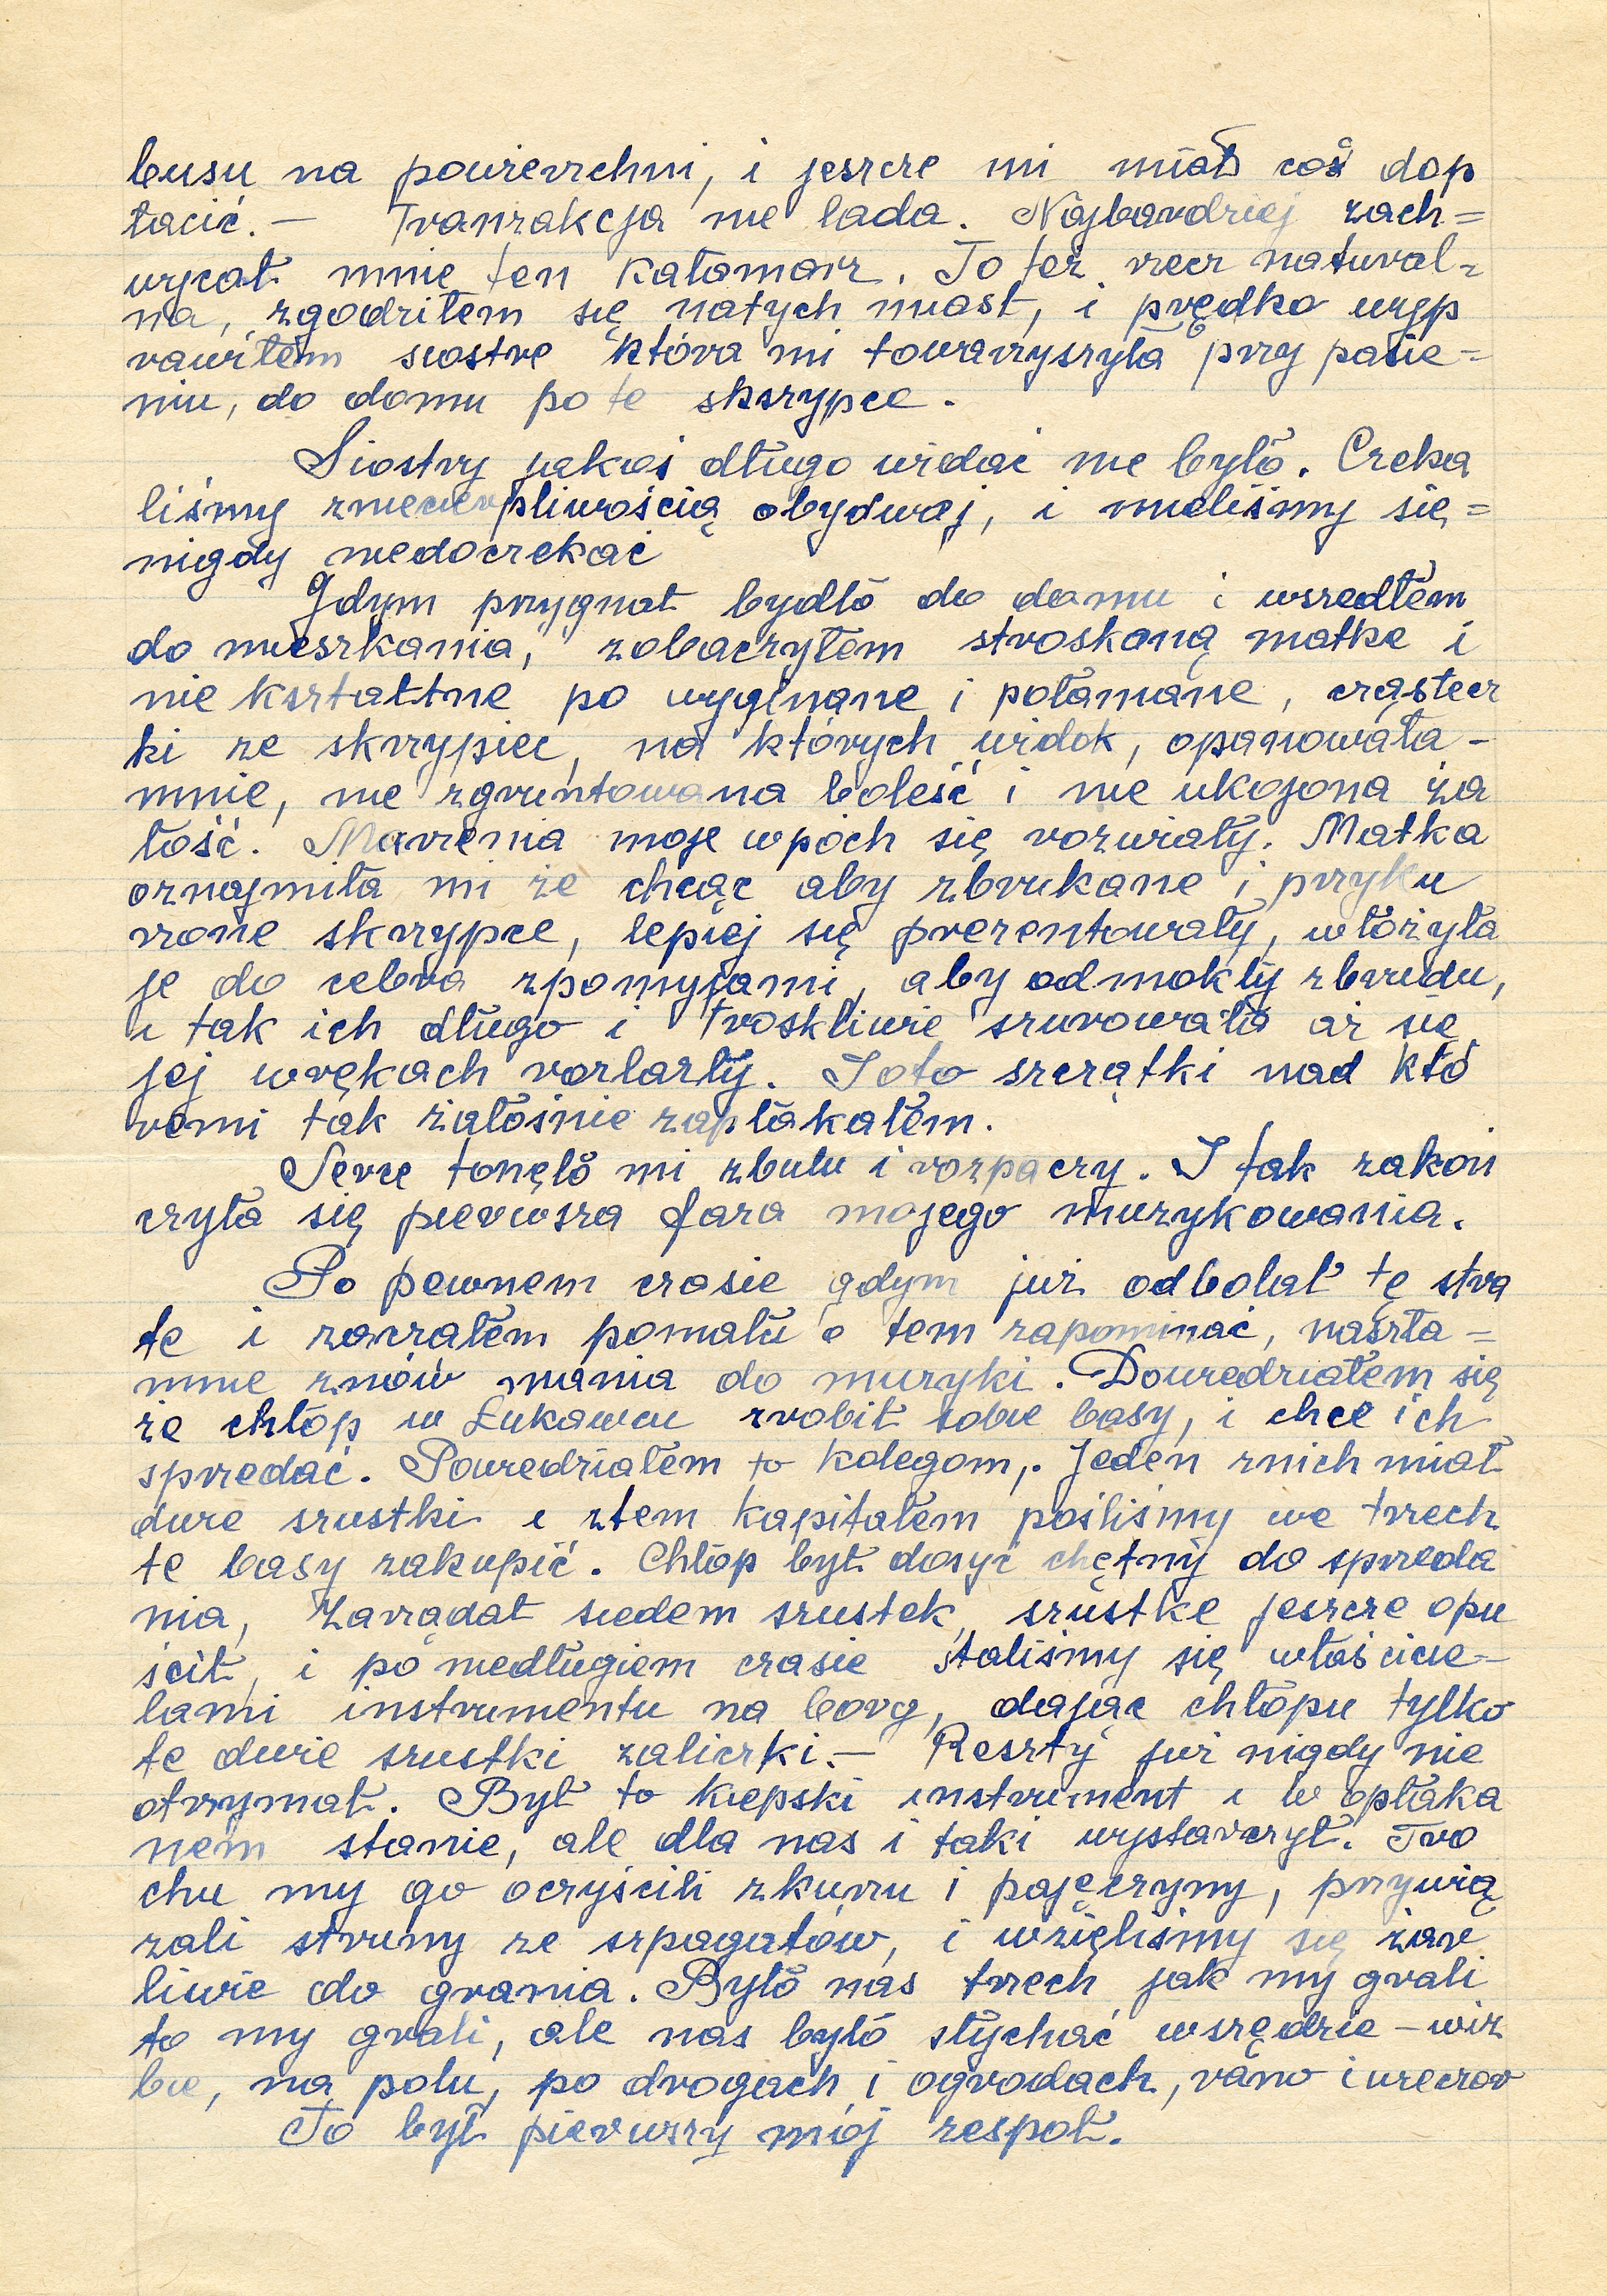 busu na powierzchni, i jeszcze mi miał coś dop
łacić. — Tranzakcja nie lada. Najbardziej zach=
wycał mnie ten kałamarz. To też rzecz natural=
na, zgodziłem się natych miast, i prędko wyp
rawiłem siostre która mi towarzyszyła przy pasie=
niu, do domu po te skrzypce.
Siostry jakoś długo widać nie było. Czeka
liśmy zniecierpliwością obydwaj, i mieliśmy się=
nigdy niedoczekać
Gdym przygnał bydło do domu i wszedłem
do mieszkania, zobaczyłem stroskaną matke i
nie kształtne po wyginane i połamane, cząstecz
ki ze skrzypiec, na których widok, opanowała-
mnie, nie zgruntowana boleść i nie ukojona ża
łość. Marzenia moje wpóch się rozwiały. Matka
oznajmiła mi że chcąc aby zbrukane i przyku
rzone skrzypce, lepiej się prezentowały, włożyła
je do cebra zpomyjami, aby odmokły zbrudu,
i tak ich długo i troskliwie szurowała aż się
jej wrękach rozlazły. I oto szczątki nad któ
remi tak żałośnie zapłakałem.
Serce tonęło mi zbulu i rozpaczy. I tak zakoń
czyła się pierwsza faza mojego muzykowania.
Po pewnem czasie gdym już odbolał tę stra
te i zaczałem pomału o tem zapominać, naszła-
mnie znów mania do muzyki. Dowiedziałem się
że chłop w Łukawcu zrobił sobie basy, i chce ich
spredać. Powiedziałem to kolegom,. Jeden znich miał
dwie szustki i ztem kapitałem pośliśmy we trzech
te basy zakupić. Chłop był dosyć chętny do spreda
nia, Zarządał siedem szustek, szustke jeszcze opu
ścił, i po niedługiem czasie staliśmy się właścicie-
lami instrumentu na borg, dając chłopu tylko
te dwie szustki zaliczki. — Reszty już nigdy nie
otrzymał. Był to kiepski instrument i w opłaka
nem stanie, ale dla nas i taki wystarczył. Tro
chu my go oczyścili zkurzu i pajęczyny, przywią
zali struny ze szpagatów, i wzięliśmy się żar
liwie do grania. Było nas trzech jak my grali
to my grali, ale nas było słychać wszędzie – wiz
bie, na polu, po drogach i ogrodach, rano i wieczor
To był pierwszy mój zespoł.